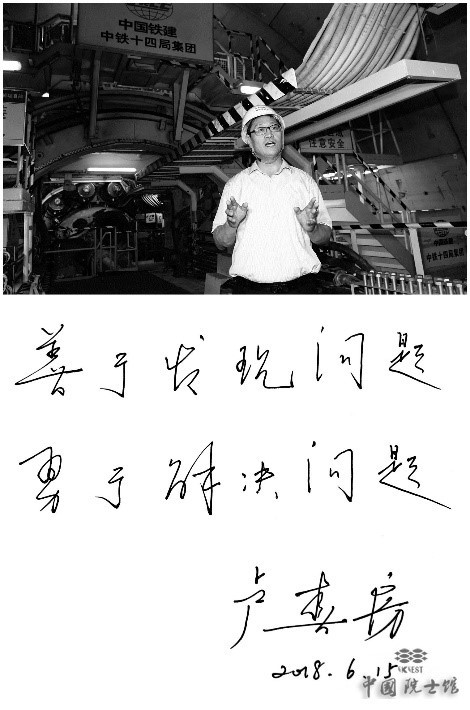 中国铁建
中铁十四局集团
注意安全
中铁十四局集团
善于发现问题
勇于解决问题
卢春房
2018.6.15
中國院士馆